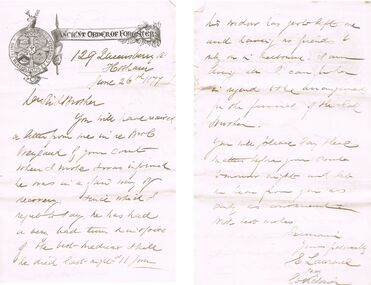 ANCIENT ORDER OF FORESTERS
129 Queensberry St
Hotham
June 26th 1877
Dear Sir & Brother
You will have received
a letter from me in re Bro C
of your court
when I wrote I was informed
he was in a fair way of
recovery. Since which I
regret to say he has had
a been bad turn in spite
of the best medical skill
he died last night 11 pm
his widow has just left me
and having no friends to
rely on in Melbourne I am
doing all I can for her
in regard to the arrangements
for the funeral of the dead
Brother.
You will please lay these
matters before your Court
tomorrow night and let
me hear from you as
early as convenient
With best wishes
I remain
Yours fraternally
E Lawrence